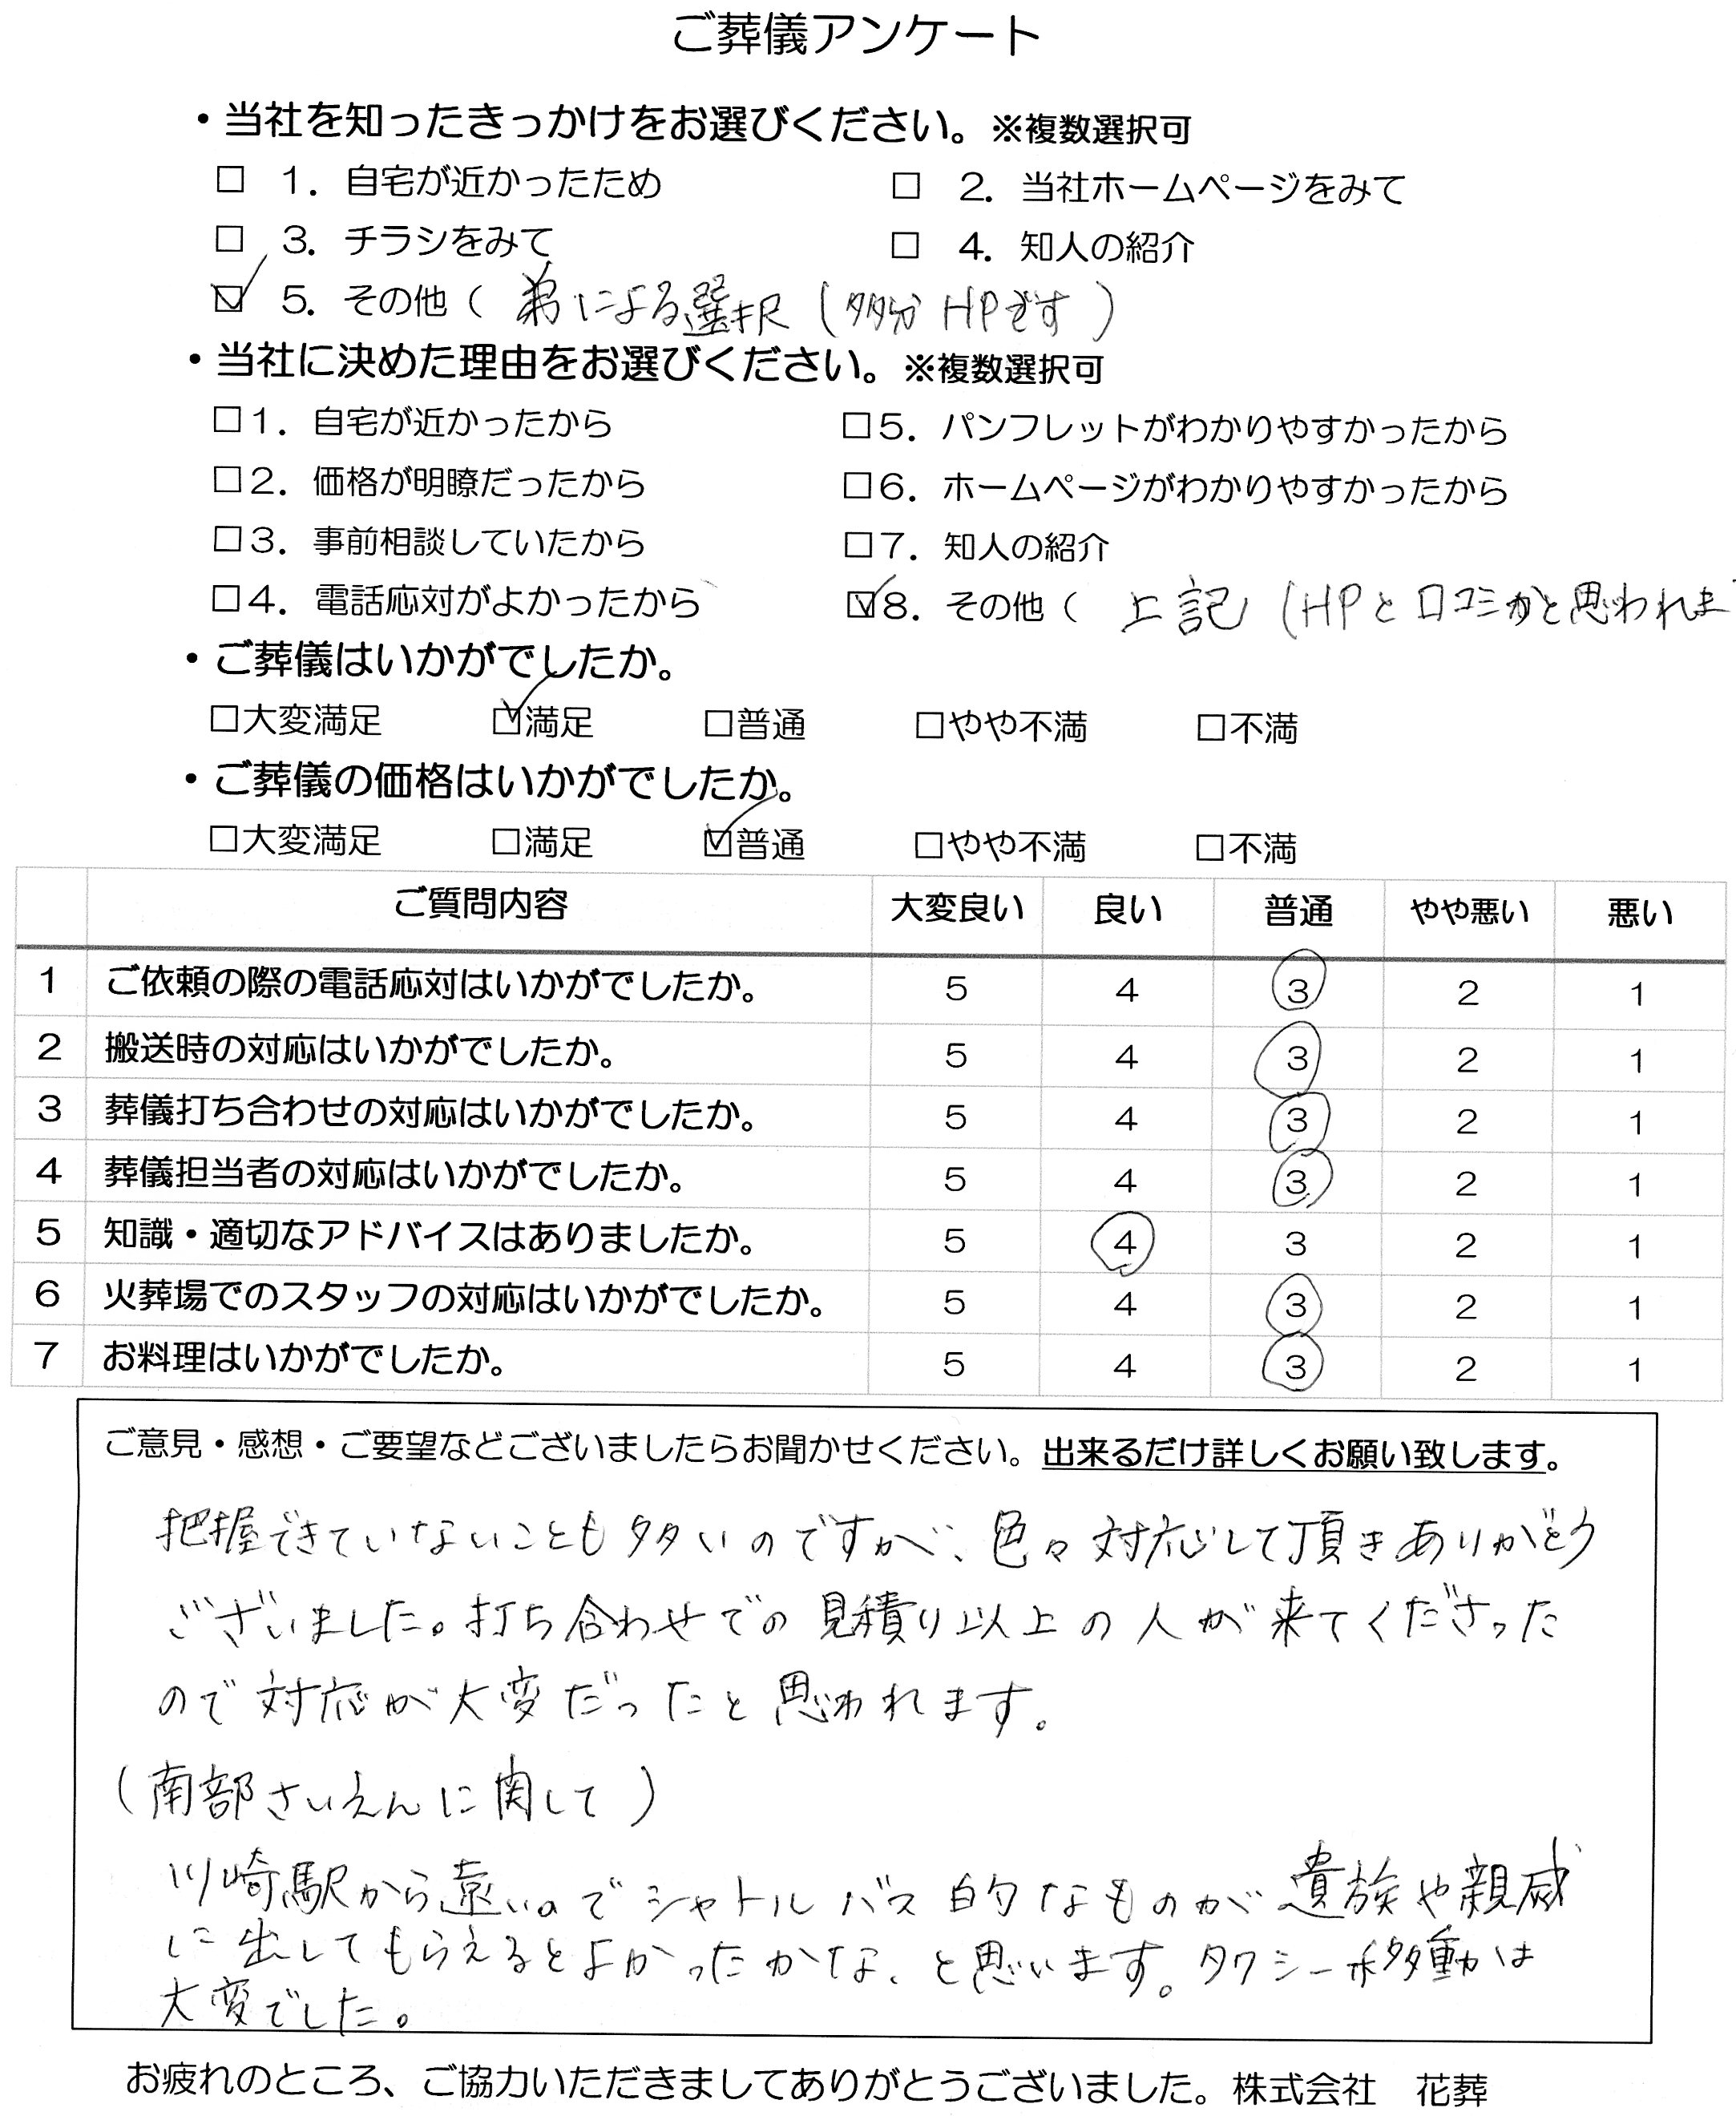 ご葬儀アンケート
・当社を知ったきっかけをお選びください。※複数選択可
□ 1. 自宅が近かったため □ 2. 当社ホームページをみて
□ 3. チラシをみて □ 4. 知人の紹介
☑ 5. その他（ 弟による選択（多分HPです）
・当社に決めた理由をお選びください。※複数選択可
□1. 自宅が近かったから □5. パンフレットがわかりやすかったから
□2. 価格が明瞭だったから □6. ホームページがわかりやすかったから
□3. 事前相談していたから □7. 知人の紹介
□4. 電話応対がよかったから ☑8. その他（ 上記（HPと口コミかと思われま
・ご葬儀はいかがでしたか。
□大変満足 ☑満足 □普通 □やや不満 □不満
・ご葬儀の価格はいかがでしたか。
□大変満足 □満足 ☑普通 □やや不満 □不満
ご質問内容 大変良い 良い 普通 やや悪い 悪い
1 ご依頼の際の電話応対はいかがでしたか。 5 4 3 2 1
2 搬送時の対応はいかがでしたか。 5 4 3 2 1
3 葬儀打ち合わせの対応はいかがでしたか。 5 4 3 2 1
4 葬儀担当者の対応はいかがでしたか。 5 4 3 2 1
5 知識・適切なアドバイスはありましたか。 5 4 3 2 1
6 火葬場でのスタッフの対応はいかがでしたか。 5 4 3 2 1
7 お料理はいかがでしたか。 5 4 3 2 1
ご意見・感想・ご要望などございましたらお聞かせください。出来るだけ詳しくお願い致します。
把握できていないことも多いのですが、色々対応して頂きありがとう
ございました。打ち合わせでの見積り以上の人が来てくださった
ので対応が大変だったと思われます。
（南部さいえんに関して）
川崎駅から遠いのでシャトルバス的なものが遺族や親戚
に出してもらえるとよかったかな、と思います。タクシー移動は
大変でした。
お疲れのところ、ご協力いただきましてありがとうございました。株式会社 花葬